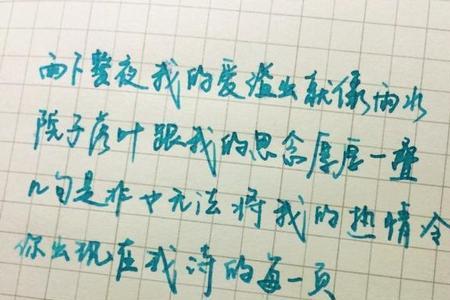 雨下整夜我的爱溢出就像雨水
院子落叶跟我的思念厚厚一叠
几句是非也无法将我的热情冷
你出现在我诗的每一页